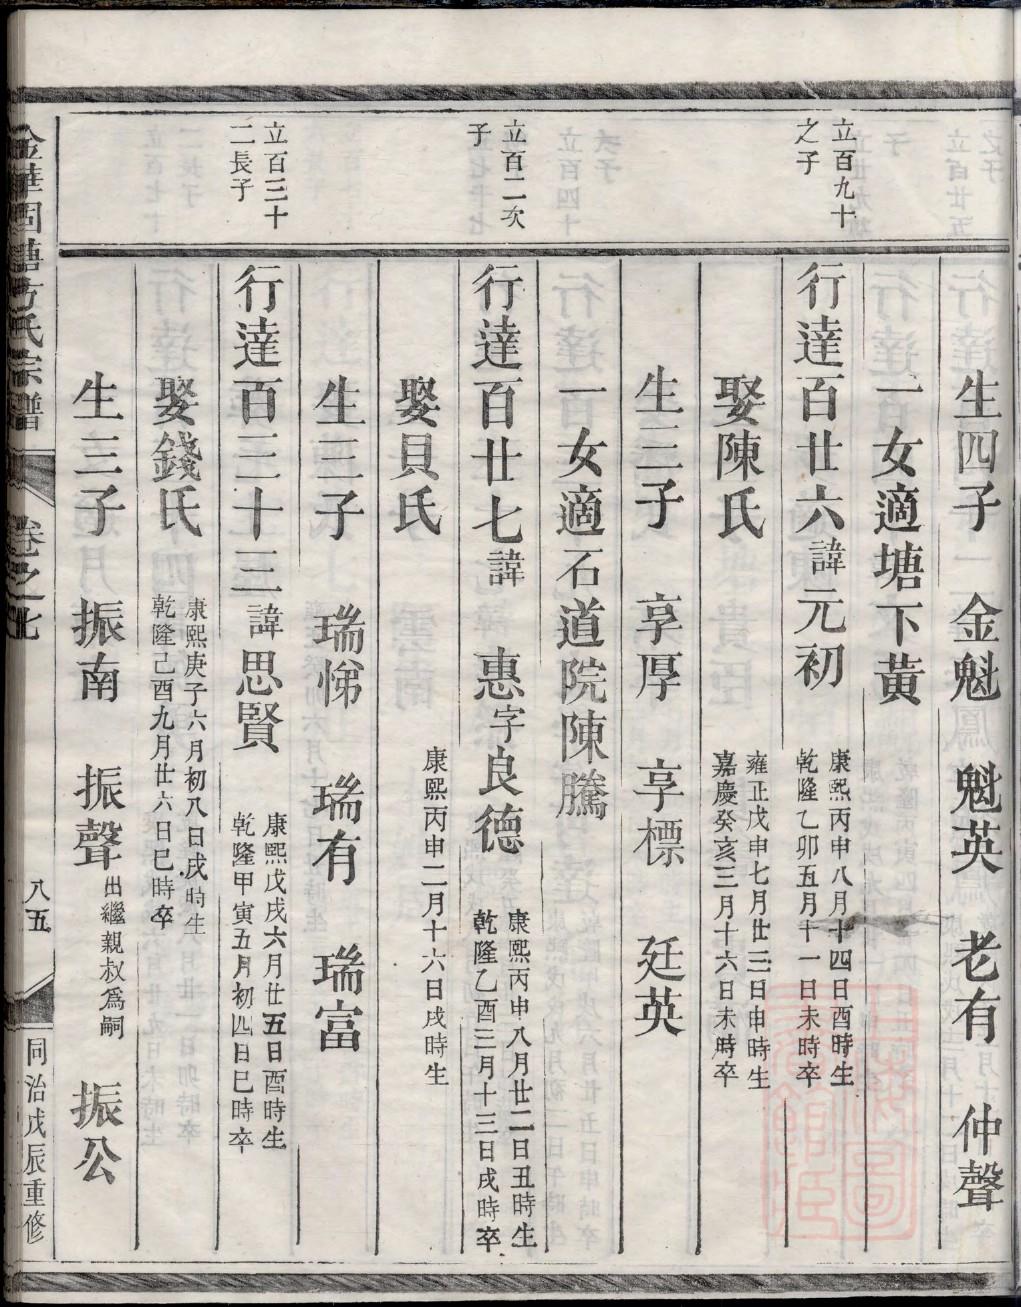 生四子 金魁 魁英 老有 仲聲
一女適塘下黃
立百九十
之子
行達百廿六諱元初
康熙丙申八月十四日酉時生
乾隆乙卯五月十一日未時卒
娶陳氏
雍正戊申七月廿三日申時生
嘉慶癸亥三月十六日未時卒
生三子 享厚 享標 廷英
一女適石道院陳騰
立百二次
子
行達百廿七諱惠字良德
康熙丙申八月廿二日丑時生
乾隆乙酉三月十三日戌時卒
娶貝氏
康熙丙申二月十六日戌時生
生三子 瑞悌 瑞有 瑞富
立百三十
二長子
行達百三十三諱思賢
康熙戊戌六月廿五日酉時生
乾隆甲寅五月初四日巳時卒
娶錢氏
康熙庚子六月初八日戌時生
乾隆己酉九月廿六日巳時卒
生三子 振南 振聲出繼親叔爲嗣 振公
金華固塘方氏宗譜 卷之七 八五 同治戊辰重修